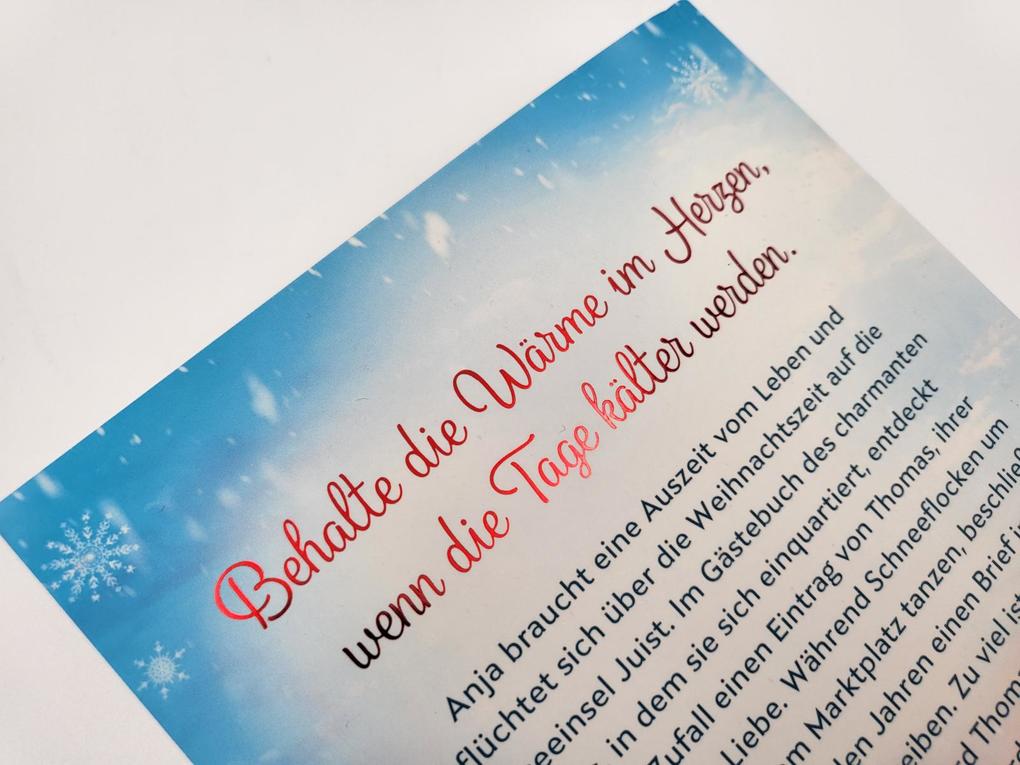 Behalte die Wärme im Herzen,
wenn die Tage kälter werden.
Anja braucht eine Auszeit vom Leben und
flüchtet sich über die Weihnachtszeit auf die
Juist. Im Gästebuch des charmanten
in dem sie sich einquartiert, entdeckt
Zufall einen Eintrag von Thomas, ihrer
Liebe. Während Schneeflocken um
Marktplatz tanzen,
Jahren einen Brief
Zu viel ist